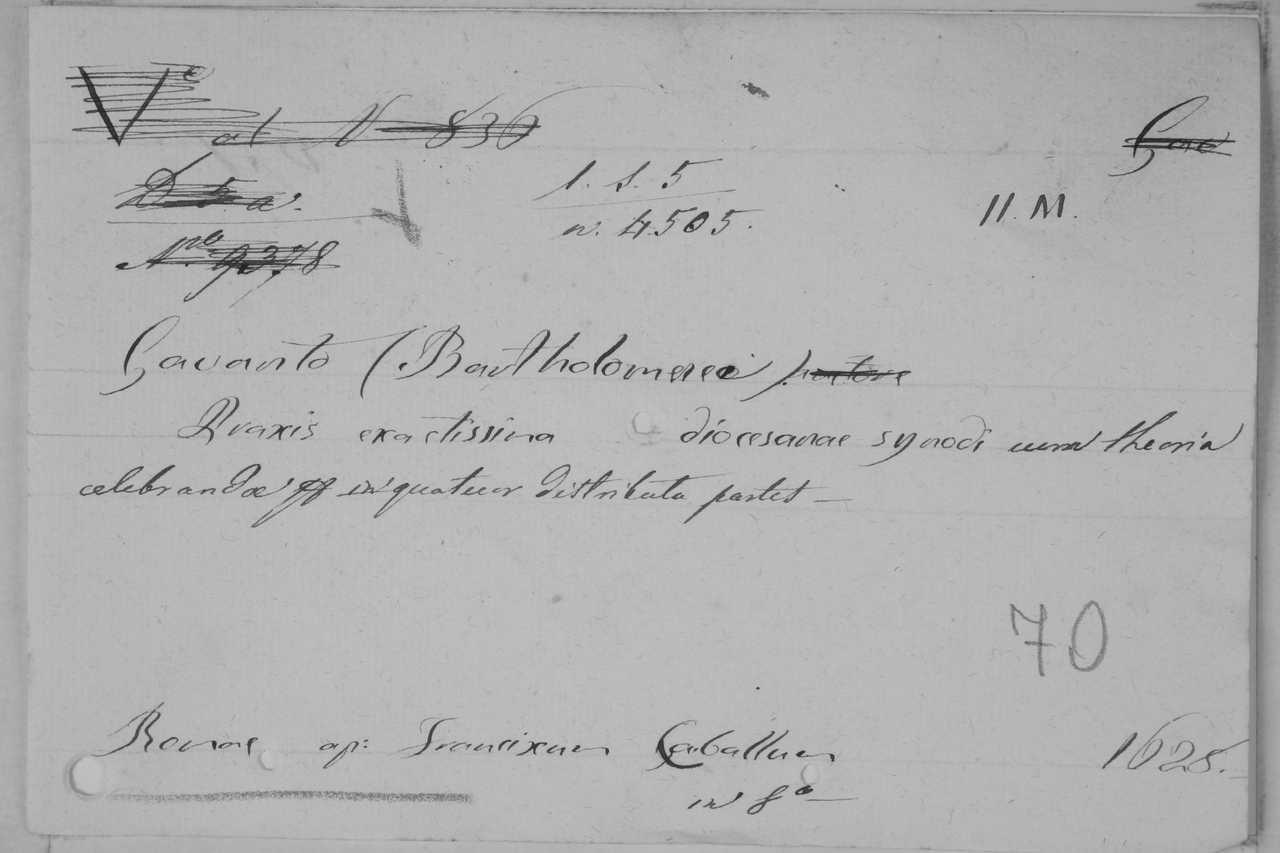 V^e al N 836
Gav
D. 5. a.
1. S. 5
N.ro 9378
n. 4505.
11. M.
Gavanto (Bartholomeei) 
Praxis exactissima diocesanae synodi cum theoria
celebrandae in quatuor distributa partes —
70
Romae ap: Franciscum Caballum 1628.
in 8° —